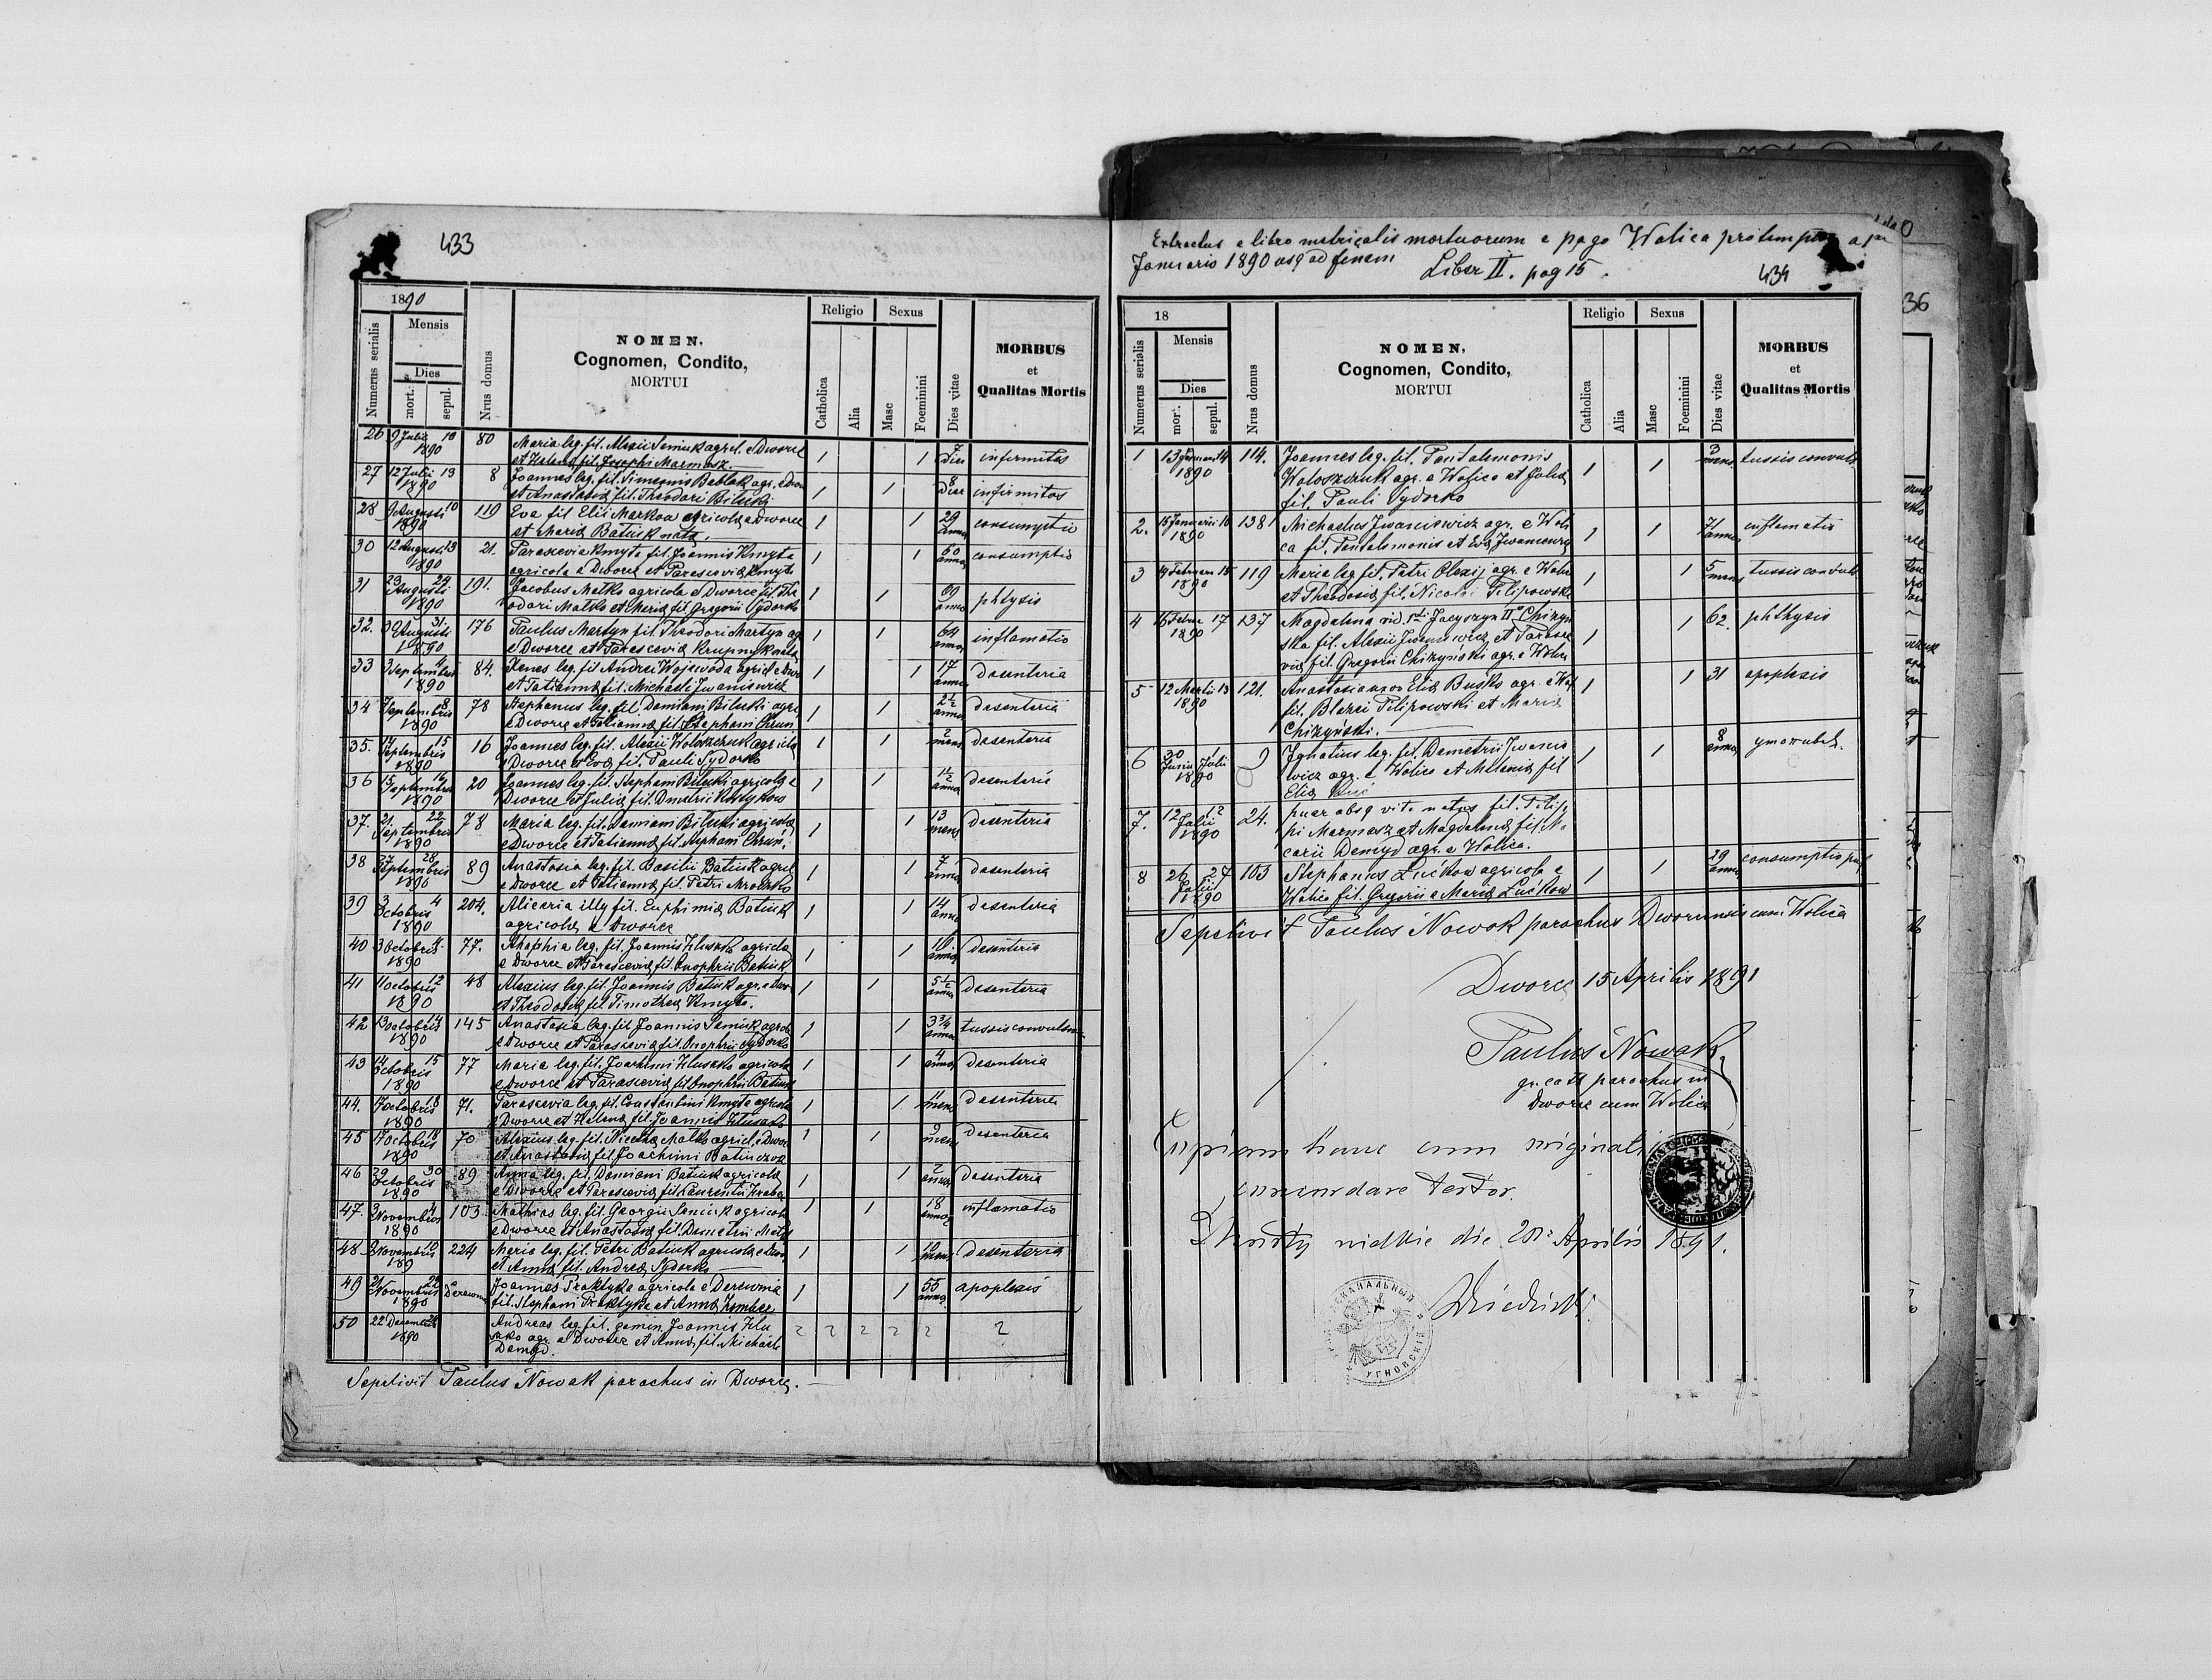 433
1890
Numerus serialis
Mensis
Dies
mort.
sepul.
Nrus domus
NOMEN,
Cognomen, Condito,
MORTUI
Religio
Catholica
Alia
Sexus
Masc
Foeminini
Dies vitae
MORBUS
et
Qualitas Mortis
26 9 Julii 10 1890 80 Maria leg. fil. Alexii Seniuk agricol. e Dworce
et Helena fil. Josephi Marmasz. 1 1 7 dier infirmitas
27 12 Julii 13 1890 8 Joannes leg. fil. Simeonis Bablak agr. e Dwor
et Anastasia fil. Theodori Biluski 1 1 8 dier infirmitas
28 9 Augusti 10 1890 119 Eva fil Elii Markow agricola e Dworce
et Maria Batiuk nata. 1 1 29 annor consumptio
30 12 Augusti 13 1890 21. Parascevia Kmyta fil. Joannis Kmyta
agricola e Dworce et Parascevia Kmyta 1 1 60 annor consumptio
31 23 Augusti 24 1890 191. Jacobus Malko agricola e Dworce fil. The
odori Malko et Maria fil Gregorii Sydorko 1 1 annor phtysis
32. 30 Augusti 31 1890 176 Paulus Martyn fil. Theodori Martyn ag
e Dworce et Parascevia Krupnyk nata 1 1 64 annor inflamatio
33 3 Septembris 4 1890 84. Xenes leg. fil Andrei Wojewoda agricol e Dwor
et Tatianna fil. Michaeli Iwaniswicz 1 1 17 annor desenteria
34 7 Septembris 8 1890 78 Stephanus leg. fil. Damiani Biluski agri
e Dworce et Tatianna fil. Stephani Chruń 1 1 2 1/2 annor desenteria
35. 14 Septembris 15 1890 16 Joannes leg. fil. Alexii Woloszczuk agricola
e Dworce et Eva fil. Pauli Sydorko 1 1 2 mens desenteria
36 15 Septembris 16 1890 20 Joannes leg. fil. Stephani Biluski agricola e
Dworce et Julia fil. Dmetrii Kostykow 1 1 1 1/2 annor desenteria
37. 21. Septembris 22 1890 78 Maria leg. fil. Damiani Biluski agricola
e Dworce et Tatianna fil. Stephani Chruń. 1 1 13 mens desenteria
38 27 Septembris 28 1890 89 Anastasia leg. fil. Basilii Batiuk agricl
e Dworce et Tatianna fil. Petri Mroczko 1 1 7 annor desenteria
39 3 Octobris 4 1890 204. Alicaria illg fil. Euphimia Batiuk
agricola e Dworce 1 1 14 annor desenteria
40 3 Octobris 4. 1890 77. Ahaphia leg. fil. Joannis Hlusko agricola
e Dworce et Parascevia fil. Onophrii Batiuk 1 1 10. annor desenteria
41 11 Octobris 12 1890 48 Alexius leg. fil. Joannis Batiuk agr. e Dwor
et Theodosia fil Timothea Kmyta. 1 1 5 1/2 annor desenteria
42 13 Octobris 14 1890 145 Anastasia leg. fil Joannis Seniuk agricola
e Dworce et Parascevia fil. Onophrii Sydorko 1 1 3 3/4 annor tussis convulsiva
43 14 Octobris 15 1890 77 Maria leg. fil. Joachimi Hlusko agricola
e Dworce et Parascevia fil Onophrii Batiuk 1 1 4 annor desenteria
44. 17 Octobris 18 1890 71. Parascevia leg. fil. Constantini Kmyta agricola
e Dworce et Helena fil. Joannis Hlusako 1 1 11 mens desenteria
45 17 Octobris 18 1890 70 Alexius leg. fil. Nicetha Malko agricl. e Dwor
et Anastasia fil. Joachimi Batiuczok 1 1 9 mens desenteria
46 29 Octobris 30 1890 89 Anna leg. fil. Damiani Batiuk agricola
e Dworce et Parascevia fil. Laurentii Hraba 1 1 2 annor desenteria
47. 3 Novembris 4 1890 103 Mathias leg. fil. Georgii Seniuk agricola
e Dworce et Anastasia fil. Demetrii 1 1 18 annor inflamatio
48 9 Novembris 10 189 224 Maria leg. fil. Petri Batiuk agricola e Dwor
et Anna fil. Andrea Sydorko 1 1 10 mens desenteria
49 21 Novembris 22 1890 Derewnia Joannes Praktyka agricola e Derewnia
fil. Stephani Praktyka et Anna Zembee 1 1 55 annor apoplexis
50 22 Decembris 1890 Andreas leg. fil. gemin. Joannis Hlu
sako agr. e Dworce et Anna fil. Michaeli
Demyd.
Sepelivit Paulus Nowak parochus in Dworce.
Extractus e libro metricalis mortuorum e pago Wolica pro tempore a 1ma
Januario 1890 usq ad finem
Liber II. pag 15.
434
18
Numerus serialis
Mensis
Dies
mor.
sepul.
Nrus domus
NOMEN,
Cognomen, Condito,
MORTUI
Religio
Catholica
Alia
Sexus
Masc
Foeminini
Dies vitae
MORBUS
et
Qualitas Mortis
1 13 Januarii 14 1890 114. Joannes leg. fil. Pantalemonis
Woloszczuk agr. e Wolica et Julia
fil. Pauli Sydorko 1 1 3 mens tussis convuls
2. 15 Januarii 16 1890 138 Michaelus Iwaniswicz agr. e Woli
ca fil. Pantalemonis et Eva Iwaniswicz 1 1 71 annor inflamatio
3 14 Februarii 15 1890 119 Maria leg fil. Petri Olexij agr. e Wolica
et Theodosia fil. Nicolai Filipowski 1 1 5 mens tussis convuls
4 16 Februa 17 1890 137 Magdalena vid. 1sti Jacyszyn IIo Chizyń
ska fil. Alexii Iwaniswicz et Parasce
via fil. Gregorii Chizyński agr. e Wolica 1 1 62. phthysis
5 12 Martii 13 1890 121. Anastasia uxor Elia Busko agr. e Wol.
fil. Blazei Filipowski et Maria
Chizyński. 1 1 31 apoplexis
6 30 Junii 1 Julii 1890 9 Ignatius leg. fil. Demetrii Iwanis
wicz agr. e Wolica et Melania fil
Elia 1 1 8 annor
7. 12 Julii 12 1890 24. puer absq vita natus fil. Filip
pi Marmasz et Magdalena fil. Ma
carii Demyd agr. e Wolica.
8 26 Julii 27 1890 103 Stephanus Lućkow agricola e
Wolica fil. Gregorii e Maria Lućkow 1 1 29 annor consumptio pul
Sepelivit Paulus Nowak parochus Dworcensis cum Wolica
Dworce 15 Aprilis 1891
Paulus Nowak
gr. catt parochus in
Dworce cum Wolica
Copiam hanc cum originali
concordare testor.
die 28 Aprilis 1891.
ДЕКАНАЛЬНЫЙ
УГНОВСКІЙ
36